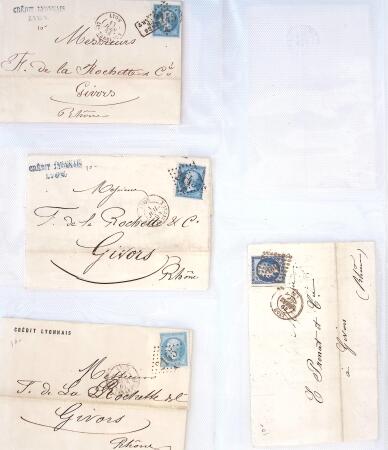 CRÉDIT LYONNAIS
LYON
Messieurs
F. de la Rochette & Cie
Givors
Rhône
CRÉDIT LYONNAIS
LYON
Messieurs
F. de la Rochette & C.
Givors
Rhône
CRÉDIT LYONNAIS
Messieurs
F. de La Rochette &
Givors
Rhône
et Cie
à Givors
(Rhône)